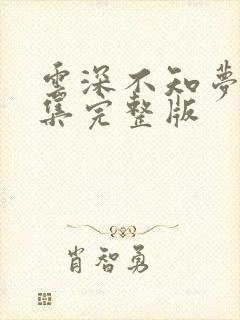 云深不知夢
集完整版
肖智勇